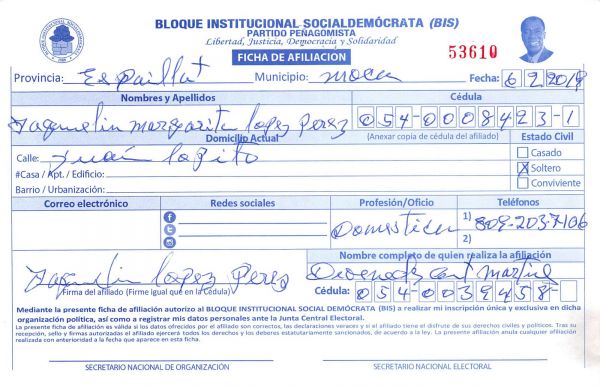 BLOQUE INSTITUCIONAL SOCIALDEMÓCRATA (BIS)
PARTIDO PEÑAGOMISTA
Libertad, Justicia, Democracia y Solidaridad
FICHA DE AFILIACIÓN
53610
Provincia: Espaillat Municipio: moca Fecha: 6 2 2019
Nombres y Apellidos Cédula
Jaquelin margarita lopez Perez 054-0008423-1
Domicilio Actual (Anexar copia de cédula del afiliado) Estado Civil
Calle: Juan lopito Casado
#Casa / Apt. / Edificio: X Soltero
Barrio / Urbanización: Conviviente
Correo electrónico Redes sociales Profesión/Oficio Teléfonos
Domestica 1) 809-203-7106
2)
Nombre completo de quien realiza la afiliación
Jaquelin lopez Perez
Firma del afiliado (Firme igual que en la Cédula) Cédula: 054-0039458-
Mediante la presente ficha de afiliación autorizo al BLOQUE INSTITUCIONAL SOCIAL DEMÓCRATA (BIS) a realizar mi inscripción única y exclusiva en dicha
organización política, así como a registrar mis datos personales ante la Junta Central Electoral.
La presente ficha de afiliación es válida si los datos ofrecidos por el afiliado son correctos, las declaraciones veraces y si el afiliado tiene el disfrute de sus derechos civiles y políticos. Tras su
recepción, sello y firmas autorizadas el afiliado ejercerá todos los derechos y los deberes estatutariamente sancionados, de acuerdo a la ley. La presente afiliación anula cualquier afiliación
realizada con anterioridad a la fecha que aparece en esta ficha.
SECRETARIO NACIONAL DE ORGANIZACIÓN SECRETARIO NACIONAL ELECTORAL